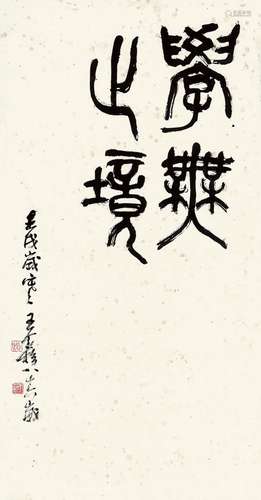 學無
止境
壬戌歲寒王个簃八十六歲